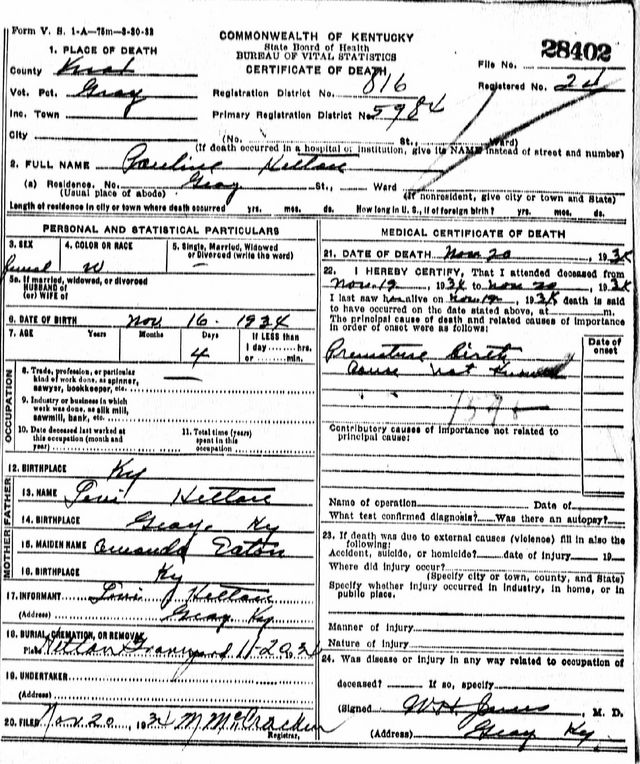 Form V. S. 1-A—75m—3-30-32
COMMONWEALTH OF KENTUCKY
State Board of Health
BUREAU OF VITAL STATISTICS
CERTIFICATE OF DEATH
28402
1. PLACE OF DEATH
File No.
County Knox
Registered No. 24
Vot. Pct. Gray
Registration District No. 816
Inc. Town
Primary Registration District No. 5984
City
(No. St., Ward)
(If death occurred in a hospital or institution, give its NAME instead of street and number)
2. FULL NAME Pauline
(a) Residence. No. Gray St., Ward
(Usual place of abode)
(If nonresident, give city or town and State)
Length of residence in city or town where death occurred yrs. mos. ds. How long in U. S., if of foreign birth? yrs. mos. ds.
PERSONAL AND STATISTICAL PARTICULARS
3. SEX
4. COLOR OR RACE
5. Single, Married, Widowed
or Divorced (write the word)
W
5a. If married, widowed, or divorced
HUSBAND of
(or) WIFE of
6. DATE OF BIRTH Nov 16 1934
7. AGE Years Months Days If LESS than
4
1 day hrs.
or min.
OCCUPATION
8. Trade, profession, or particular
kind of work done, as spinner,
sawyer, bookkeeper, etc.
9. Industry or business in which
work was done, as silk mill,
sawmill, bank, etc.
10. Date deceased last worked at
this occupation (month and
year)
11. Total time (years)
spent in this
occupation
12. BIRTHPLACE Ky
FATHER
13. NAME
14. BIRTHPLACE Gray, Ky
MOTHER
15. MAIDEN NAME Amanda Eaton
16. BIRTHPLACE Ky
17. INFORMANT
(Address) Gray Ky
18. BURIAL, CREMATION, OR REMOVAL
Place Graveyard 11-20 1934
19. UNDERTAKER
(Address)
20. FILED Nov. 20, 1934 M McCracken
Registrar.
MEDICAL CERTIFICATE OF DEATH
21. DATE OF DEATH Nov 20, 1934
22. I HEREBY CERTIFY, That I attended deceased from
Nov. 19, 1934 to Nov 20, 1934
I last saw h alive on Nov 19, 1934 death is said
to have occurred on the date stated above, at m.
The principal cause of death and related causes of importance
in order of onset were as follows:
Date of
onset
Premature Birth
Cause Not Known
159
Contributory causes of importance not related to
principal cause:
Name of operation Date of
What test confirmed diagnosis? Was there an autopsy?
23. If death was due to external causes (violence) fill in also the
following:
Accident, suicide, or homicide? date of injury 19
Where did injury occur?
(Specify city or town, county, and State)
Specify whether injury occurred in industry, in home, or in
public place.
Manner of injury
Nature of injury
24. Was disease or injury in any way related to occupation of
deceased? If so, specify
(Signed) M. D.
(Address) Gray Ky.